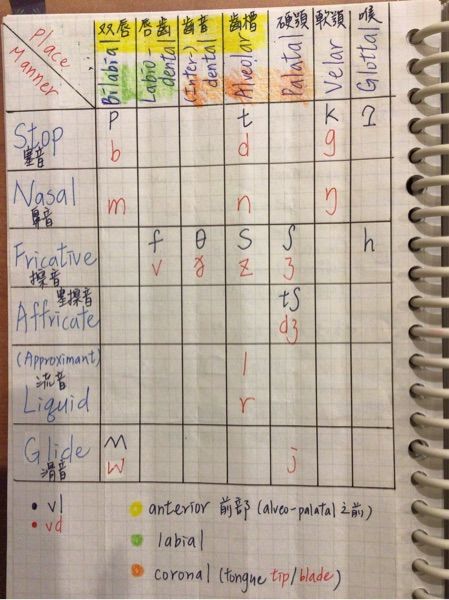 Place
Manner
双唇 唇齒 齒音 齒槽 硬顎 軟顎 喉
Bilabial Labio-dental (Inter-)dental Alveolar Palatal Velar Glottal
Stop p t k ʔ
塞音 b d g
Nasal
鼻音 m n ŋ
f θ s ʃ h
Fricative v ð z ʒ
擦音
塞擦音 tʃ
Affricate dʒ
(Approximant) l
流音
Liquid r
Glide ʍ
滑音 w j
• vl
• vd
anterior 前部 (alveo-palatal 之前)
labial
coronal (tongue tip/blade)